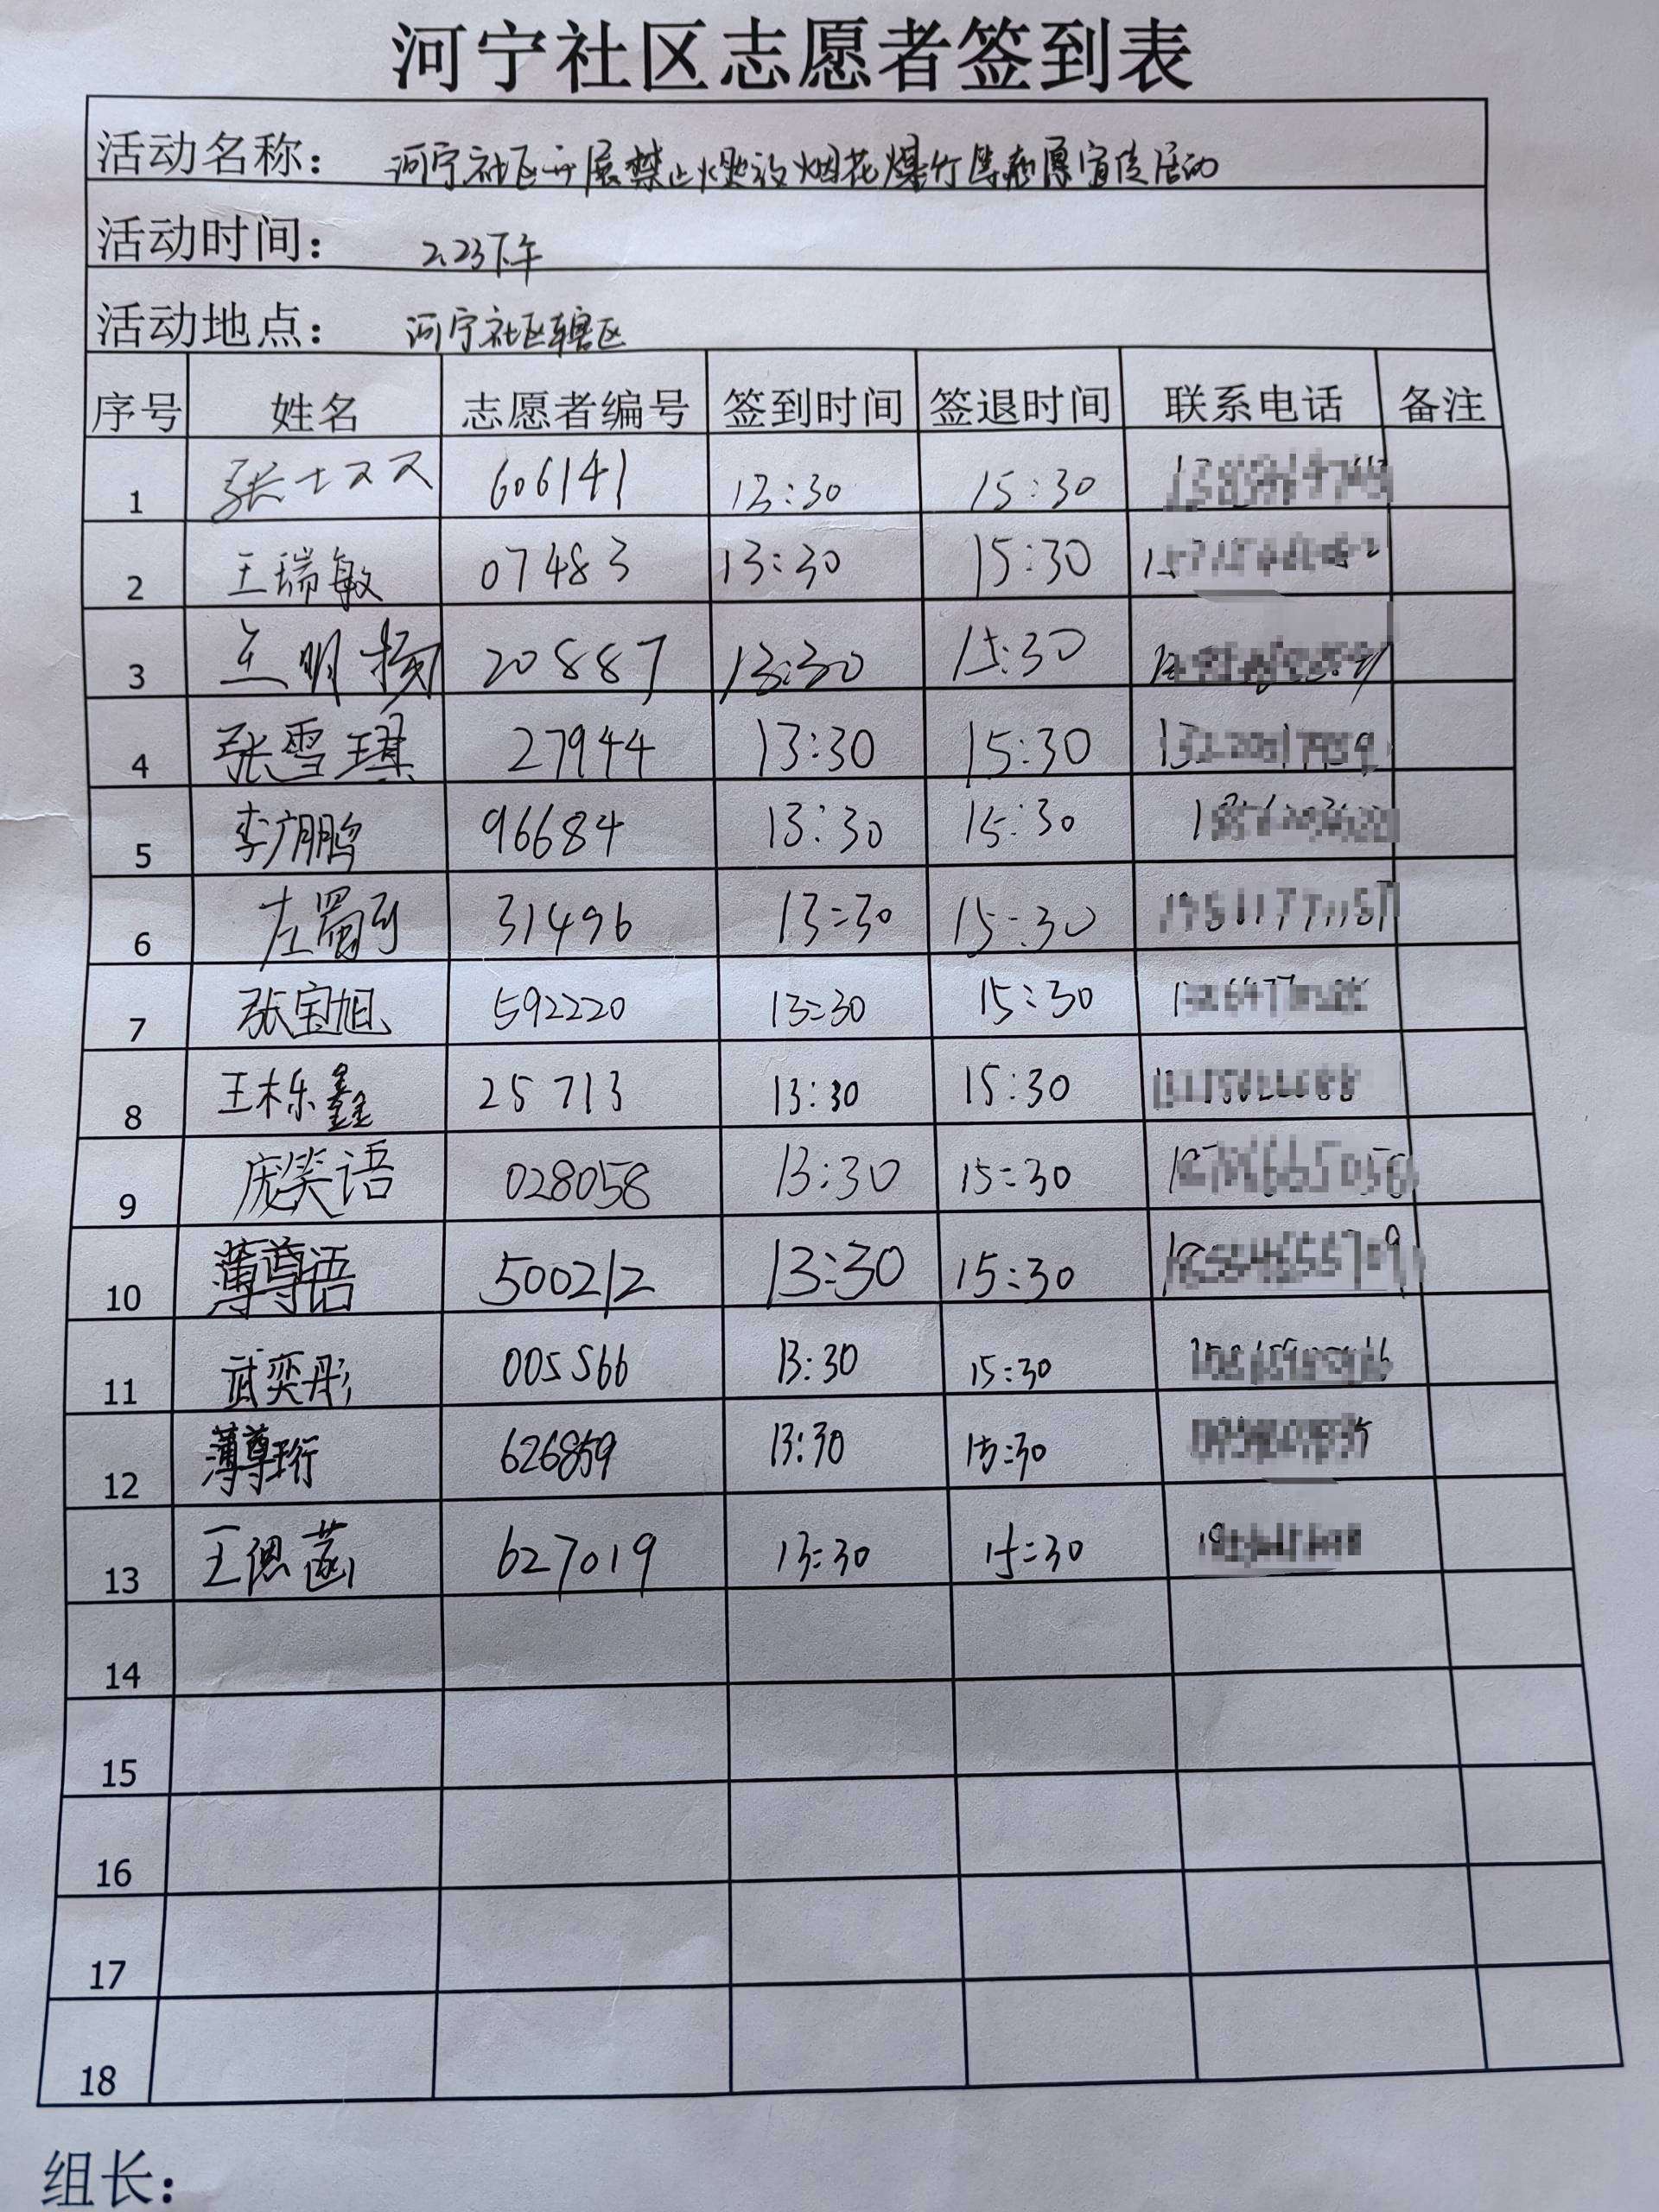 河宁社区志愿者签到表
活动名称： 河宁社区开展禁止燃放烟花爆竹等志愿宣传活动
活动时间： 2.23下午
活动地点： 河宁社区辖区
序号 姓名 志愿者编号 签到时间 签退时间 联系电话 备注
1 张 606141 13:30 15:30
2 王瑞敏 07483 13:30 15:30
3 兰明扬 20887 13:30 15:30
4 张雪琪 27944 13:30 15:30
5 李广鹏 96684 13:30 15:30
6 左 31496 13:30 15:30
7 张宝旭 592220 13:30 15:30
8 王栎鑫 25713 13:30 15:30
9 庞笑语 028058 13:30 15:30
10 薄尊语 500212 13:30 15:30
11 武奕彤 005566 13:30 15:30
12 薄尊珩 626859 13:30 15:30
13 王偲菡 627019 13:30 15:30
14
15
16
17
18
组长：